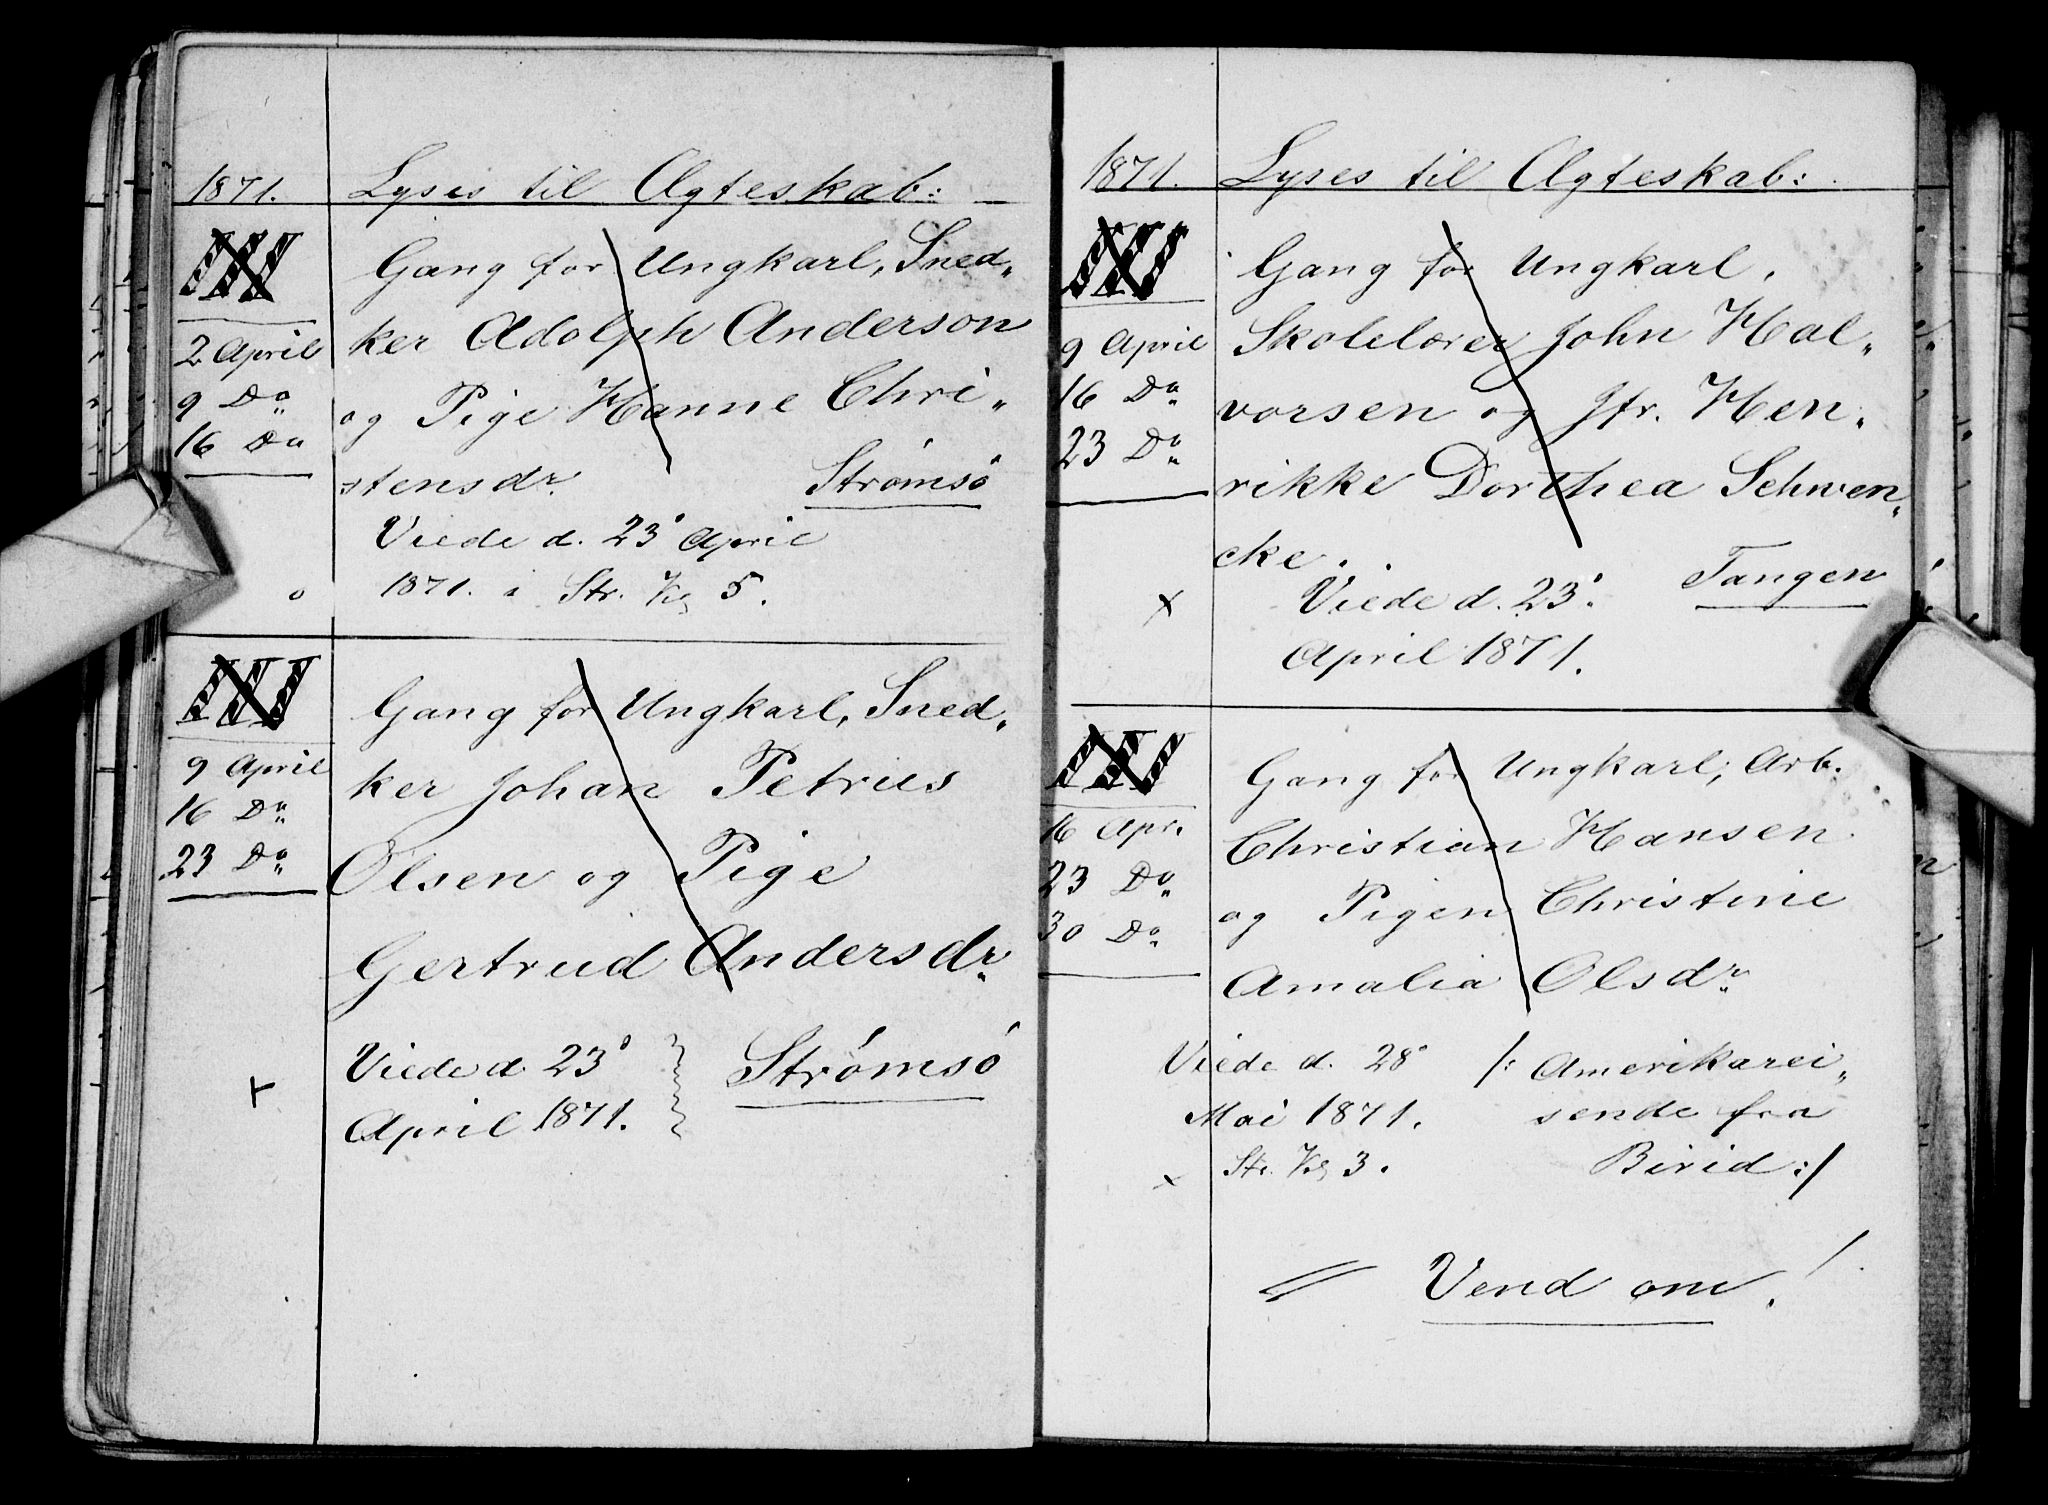 1871. Lyses til Ægteskab:
Gang for Ungkarl, Sned„
2 April ker Adolph Anderson
9 Do og Pige Hanne Chri„
16 Do
stensdr. Strömsö
Viede d. 23de April
1871. i Str. Kl. 5.
Gang for Ungkarl, Sned„
9 April ker Johan Petrus
16 Do
23 Do Olsen og Pige
Gertrud Andersdr.
Viede d. 23de Strømsö
April 1871.
1871. Lyses til Ægteskab:
Gang for Ungkarl,
9 April Skolelærer John Hal„
16 Do vorsen og Jfr. Hen„
23 Do
rikke Dorthea Schwen„
cke.
Viede d. 23de Tangen
April 1871.
Gang for Ungkarl, Arb.
16 Apr. Christian Hansen
23 Do og Pigen Christine
30 Do
Amalia Olsdr.
Viede d. 28de /: Amerikarei„
Mai 1871. sende fra
Str. Kl. 3. Birid :/
Vend om!